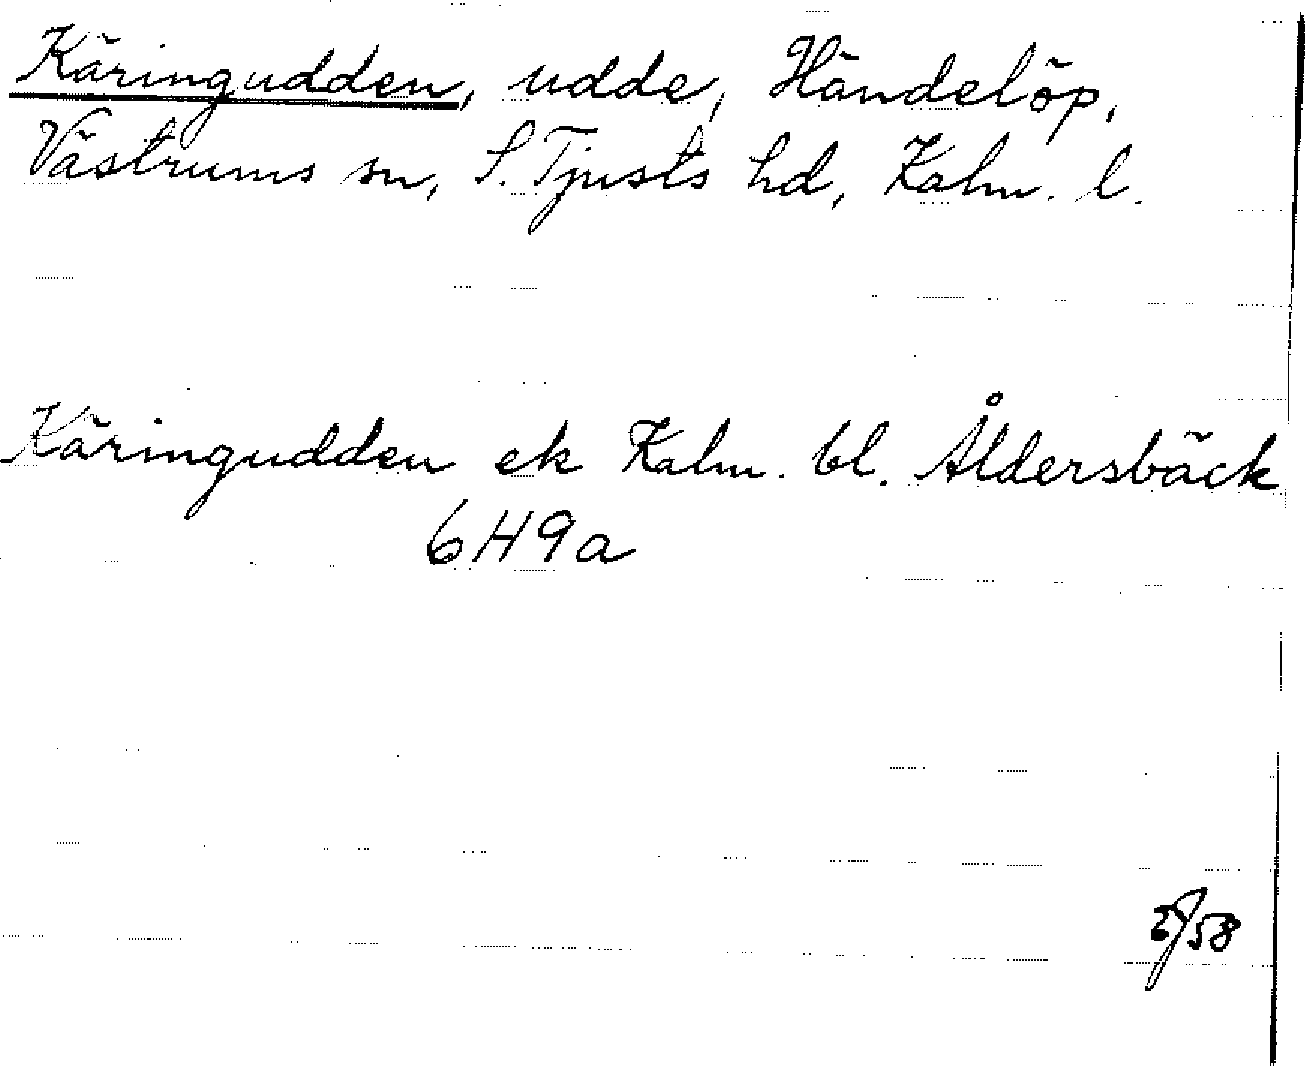 Käringudden, udde, Händelöp,
Västrums sn, S. Tjusts hd, Kalm. l.
Käringudden ek Kalm. bl. Åldersbäck
6H9a